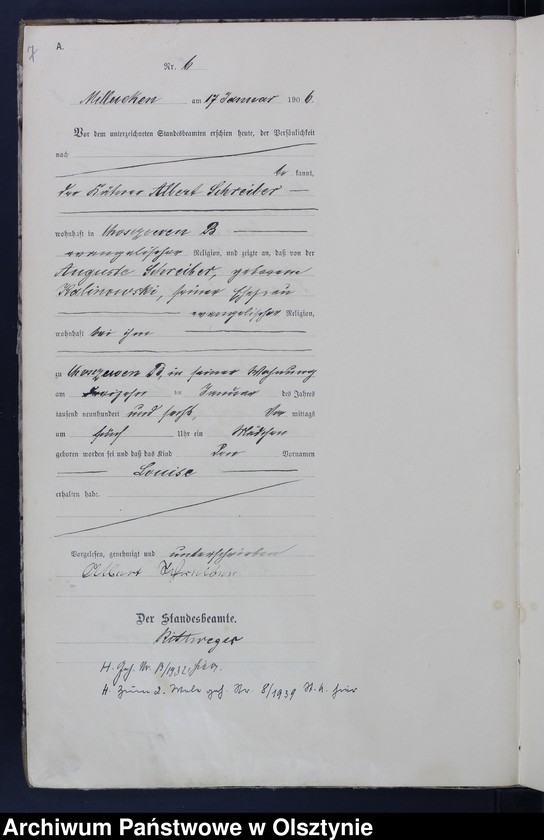 7
A.
Nr. 6
Milluken am 17 Januar 1906.
Vor dem unterzeichneten Standesbeamten erschien heute, der Persönlichkeit
nach
be kannt,
der Käthner Albert Schreiber
wohnhaft in B
evangelischer Religion, und zeigte an, daß von der
Auguste Schreiber, geborenen
Kalinowski, seiner Ehefrau
evangelischer Religion,
wohnhaft bei ihm
zu B, in seiner Wohnung
am ten Januar des Jahres
tausend neunhundert und sechs, Vor mittags
um Uhr ein Mädchen
geboren worden sei und daß das Kind den Vornamen
Louise
erhalten habe.
Vorgelesen, genehmigt und unterschrieben
Albert Schreiber
Der Standesbeamte.
Rottweger
H. Geh. Nr. 13/1932 hier.
H. Zum 2. Male geh. Nr. 8/1939 St. A. hier
Archiwum Państwowe w Olsztynie